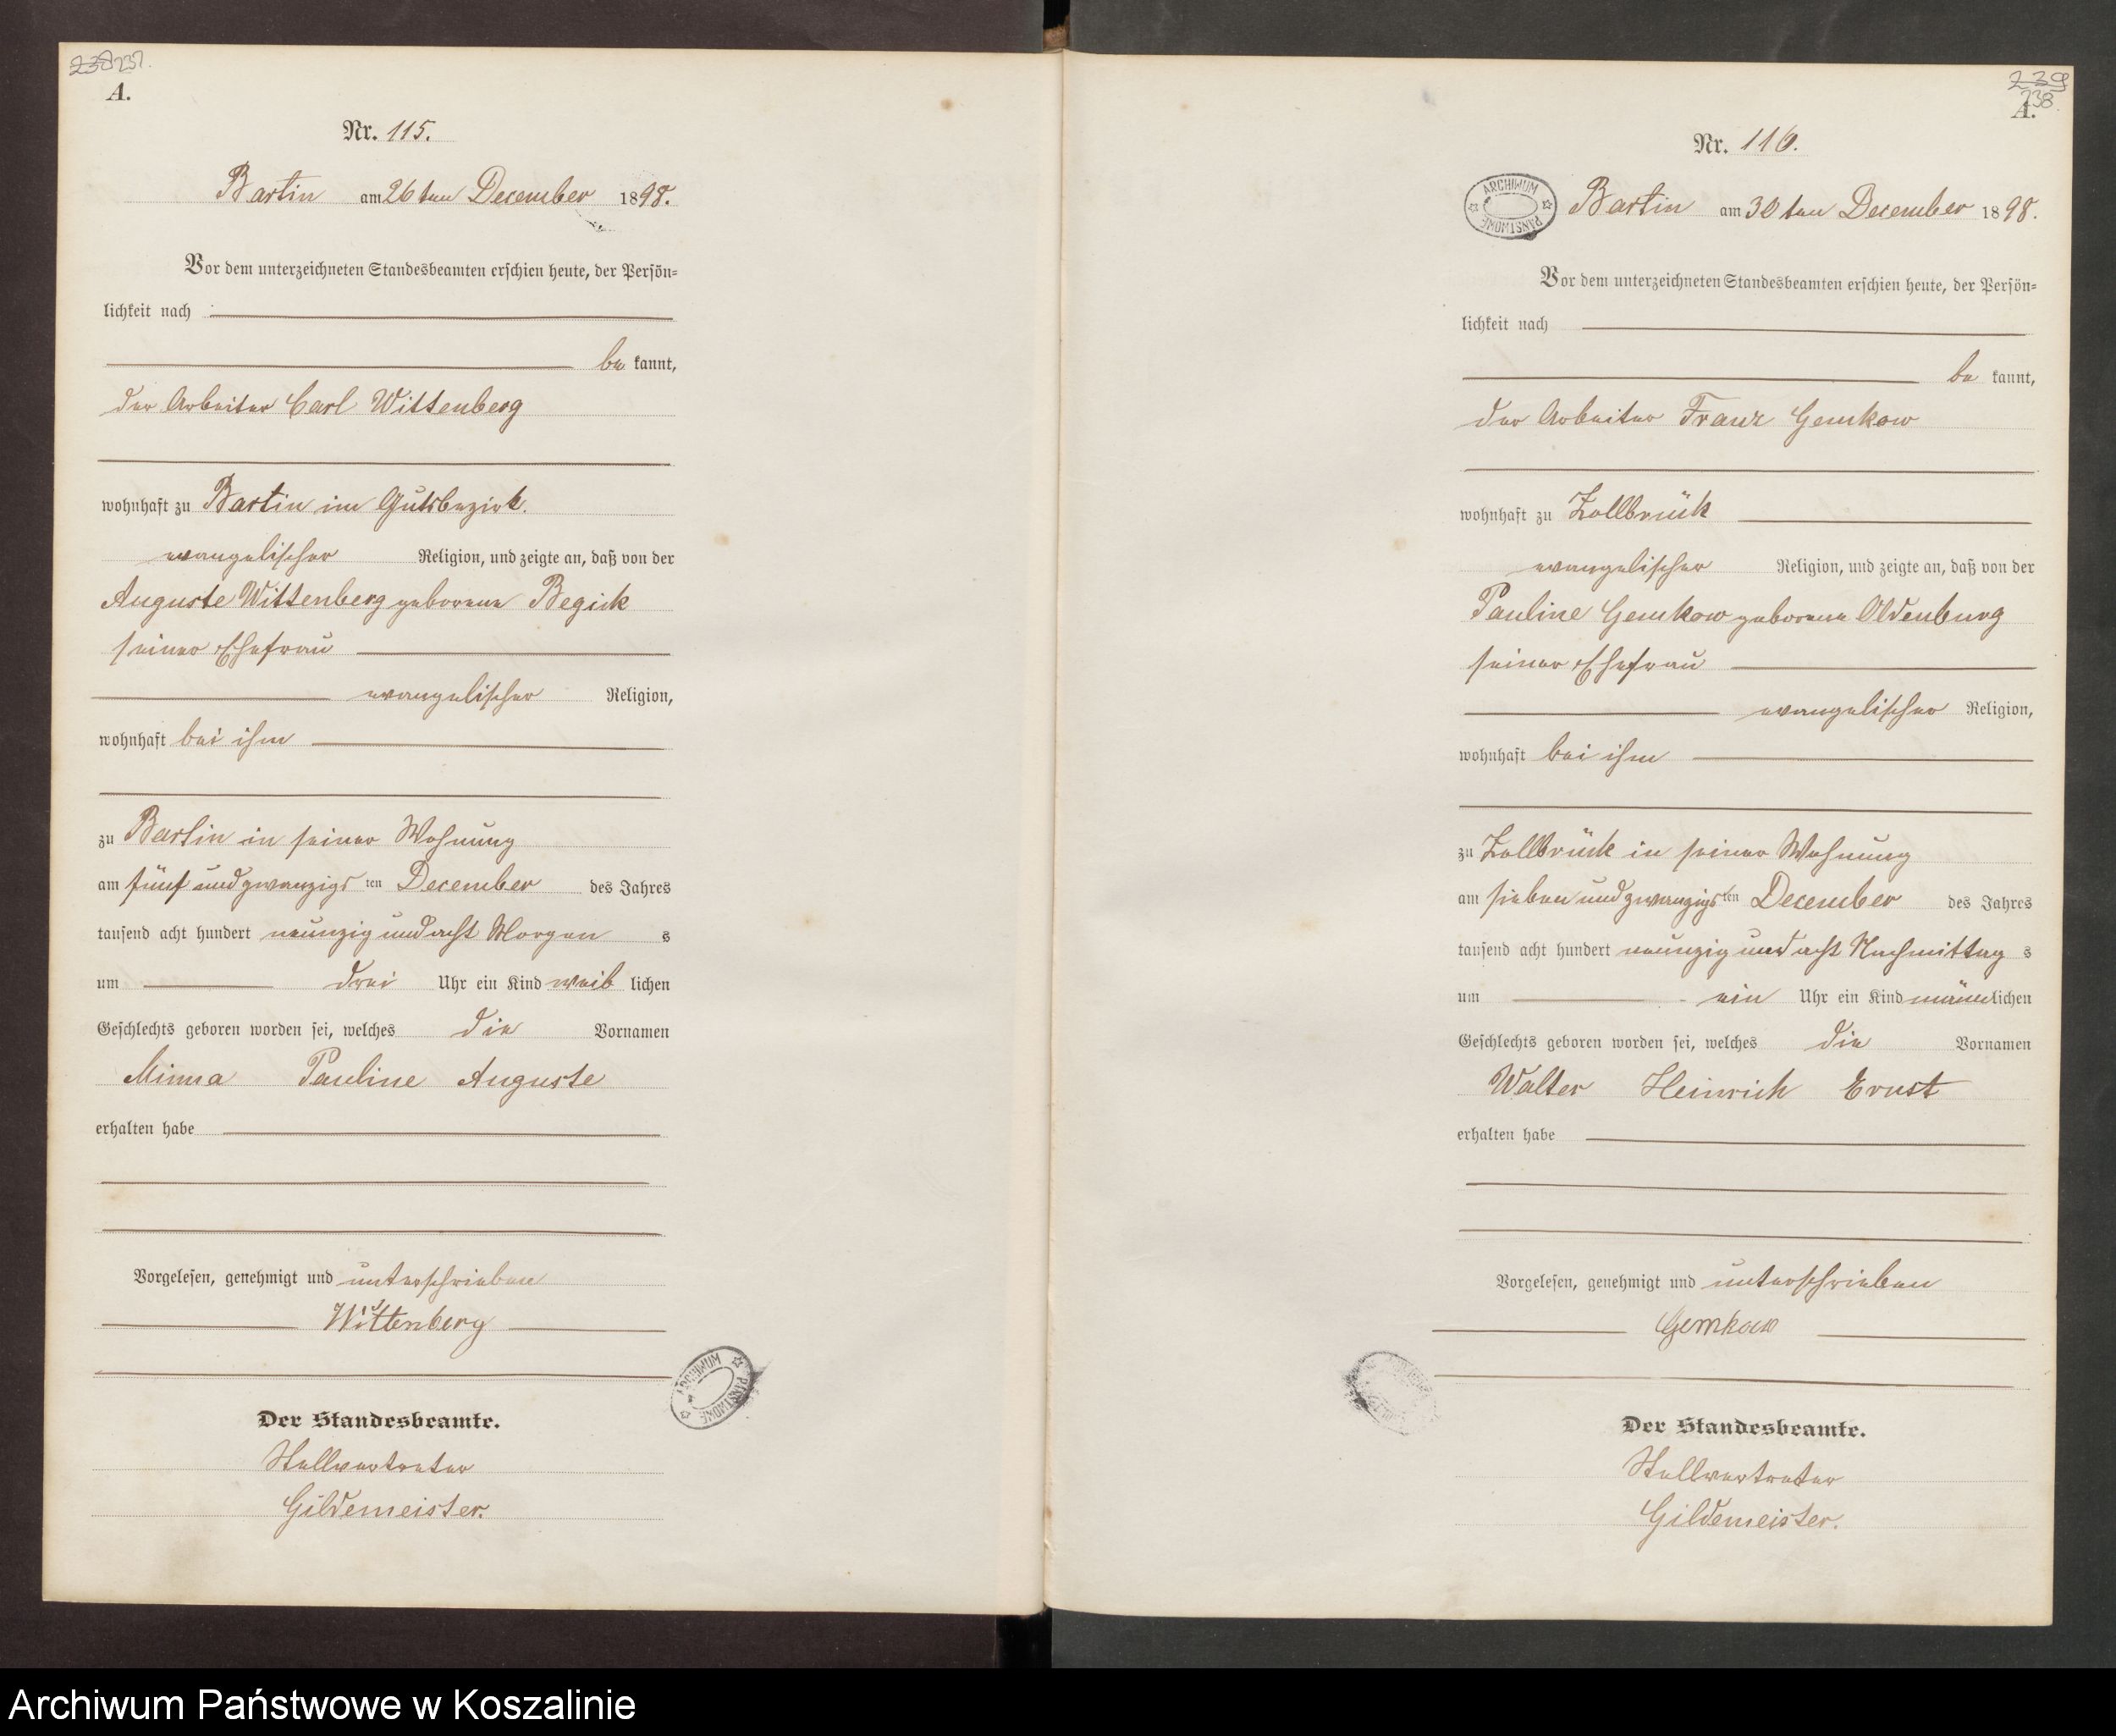 238 237.
A.
Nr. 115.
Bartin am 26ten December 1898.
Vor dem unterzeichneten Standesbeamten erschien heute, der Persön=
lichkeit nach
be kannt,
der Arbeiter Carl Wittenberg
wohnhaft zu Bartin im Gutsbezirk.
evangelischer Religion, und zeigte an, daß von der
Auguste Wittenberg geborene Begick
seiner Ehefrau
evangelischer Religion,
wohnhaft bei ihm
zu Bartin in seiner Wohnung
am fünf und zwanzigsten December des Jahres
tausend acht hundert neunzig und acht Morgens
um drei Uhr ein Kind weib lichen
Geschlechts geboren worden sei, welches die Vornamen
Minna Pauline Auguste
erhalten habe
Vorgelesen, genehmigt und unterschrieben
Wittenberg
Der Standesbeamte.
Stellvertreter
Gildemeister.
ARCHIWUM PAŃSTWOWE
239
238.
A.
Nr. 116.
ARCHIWUM PAŃSTWOWE
Bartin am 30ten December 1898.
Vor dem unterzeichneten Standesbeamten erschien heute, der Persön=
lichkeit nach
be kannt,
der Arbeiter Franz Gemkow
wohnhaft zu Zollbrück
evangelischer Religion, und zeigte an, daß von der
Pauline Gemkow geborene Oldenburg
seiner Ehefrau
evangelischer Religion,
wohnhaft bei ihm
zu Zollbrück in seiner Wohnung
am sieben und zwanzigsten December des Jahres
tausend acht hundert neunzig und acht Nachmittags
um ein Uhr ein Kind männlichen
Geschlechts geboren worden sei, welches die Vornamen
Walter Heinrich Ernst
erhalten habe
Vorgelesen, genehmigt und unterschrieben
Gemkow
Der Standesbeamte.
Stellvertreter
Gildemeister.
Archiwum Państwowe w Koszalinie